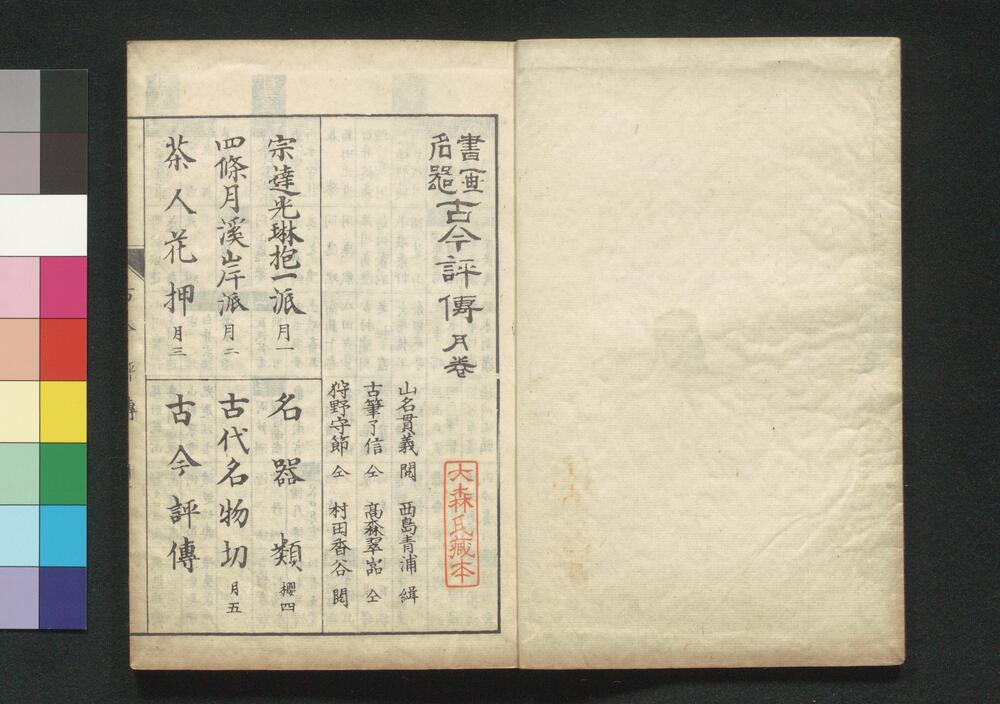 書画
名器
古今評傳 月卷
山名貫義 閲 西島青浦 緝
古筆了信 仝 髙森翠嵒 仝
狩野守節 仝 村田香谷 閲
大森氏藏本
宗達光琳抱一派 月一
四條月溪岸派 月二
茶人花押 月三
名器類 櫻四
古代名物切 月五
古今評傳